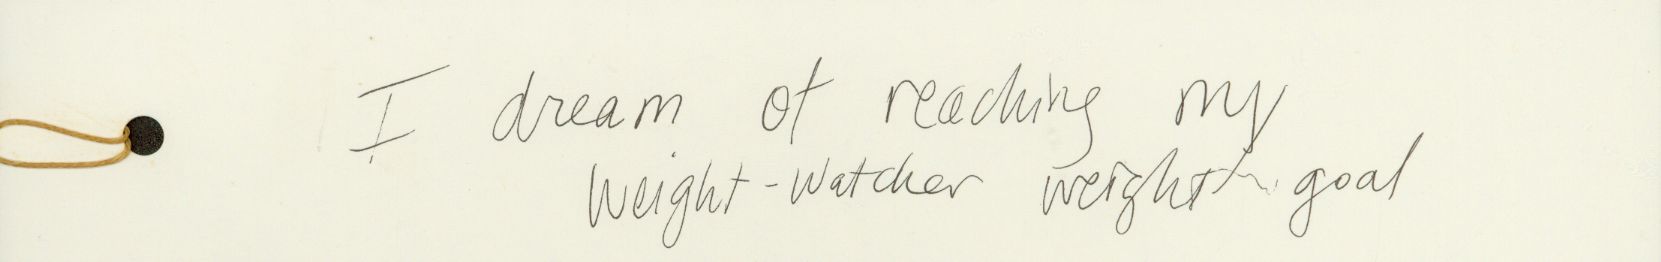 I dream of reaching my
weight-watcher weight goal